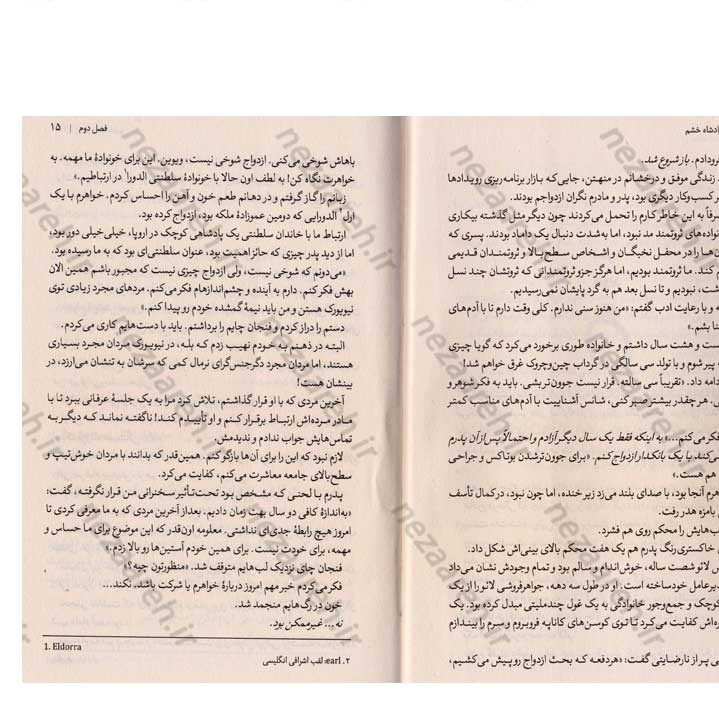 پادشاه خشم
رودادم. باز شروع شد.
زندگی موفق و درخشانم در منهتن، جایی‌که بازار برنامه‌ریزی رویدادها
کسب‌وکار دیگری بود، پدر و مادرم نگران ازدواجم بودند.
صرفاً به این خاطر کارم را تحمل می‌کردند چون دیگر مثل گذشته بیکاری
خانواده‌های ثروتمند مد نبود، اما به‌شدت دنبال یک داماد بودند. پسری که
ها را در محفل نخبگان و اشخاص سطح‌بالا و ثروتمندان قدیمی
کند. ما ثروتمند بودیم، اما هرگز جزو ثروتمندانی که ثروتشان چند نسل
شت، نبودیم و تا نسل بعد هم به گرد پایشان نمی‌رسیدیم.
و با رعایت ادب گفتم: «من هنوز سنی ندارم. کلی وقت دارم تا با آدم‌های
شنا بشم.»
ست و هشت سال داشتم و خانواده طوری برخورد می‌کرد که گویا چیزی
پیر شوم و با تولد سی سالگی در گرداب چین‌وچروک غرق خواهم شد!
ادامه داد. «تقریباً سی سالته. قرار نیست جوون‌تر بشی. باید به فکر شوهر و
هرچقدر بیشتر صبر کنی، شانس آشناییت با آدم‌های مناسب کمتر
فکر می‌کنم...» به اینکه فقط یک سال دیگر آزادم و احتمالاً پس از آن پدرم
می‌کند با یک بانکدار ازدواج کنم. «برای جوون‌تر شدن بوتاکس و جراحی
هم هست.»
هرم آنجا بود، با صدای بلند می‌زد زیر خنده، اما چون نبود، در کمال تأسف
بامزه هدر رفت.
ب‌هایش را محکم روی هم فشرد.
خاکستری‌رنگ پدرم هم یک هفت محکم بالای بینی‌اش شکل داد.
لائو شصت ساله، خوش‌اندام و سالم بود و تمام وجودش نشان می‌داد
مدیرعامل خودساخته است. او در طول سه دهه، جواهرفروشی لائو را از یک
کوچک و جمع‌وجور خانوادگی به یک غول چندملیتی مبدل کرده بود. یک
ره‌اش کفایت می‌کرد تا توی کوسن‌های کاناپه فرو بروم و سرم را بیندازم
پر از نارضایتی گفت: «هردفعه که بحث ازدواج رو پیش می‌کشیم،
فصل دوم | ۱۵
باهاش شوخی می‌کنی. ازدواج شوخی نیست، ویوین. این برای خونوادهٔ ما مهمه. به
خواهرت نگاه کن! به لطف اون حالا با خونوادهٔ سلطنتی الدورا¹ در ارتباطیم.»
زبانم را گاز گرفتم و در دهانم طعم خون و آهن را احساس کردم. خواهرم با یک
ارل² الدورایی که دومین عموزادهٔ ملکه بود، ازدواج کرده بود.
ارتباط ما با خاندان سلطنتی یک پادشاهی کوچک در اروپا، خیلی‌خیلی دور بود،
اما از دید پدر چیزی که حائز اهمیت بود، عنوان سلطنتی‌ای بود که به ما رسیده بود.
«می‌دونم که شوخی نیست، ولی ازدواج چیزی نیست که مجبور باشم همین الان
بهش فکر کنم. دارم به آینده و چشم‌اندازهام فکر می‌کنم. مردهای مجرد زیادی توی
نیویورک هستن و من باید نیمهٔ گمشده خودم رو پیدا کنم.»
دستم را دراز کردم و فنجان چایم را برداشتم. باید با دست‌هایم کاری می‌کردم.
البته در ذهنم به خودم نهیب زدم که بله، در نیویورک مردان مجرد بسیاری
هستند، اما مردان مجرد دگرجنس‌گرای نرمال کمی که سرشان به تنشان می‌ارزد، در
بینشان هست!
آخرین مردی که با او قرار گذاشتم، تلاش کرد مرا به یک جلسهٔ عرفانی ببرد تا با
مادر مرده‌اش ارتباط برقرار کنم و او تأییدم کند! ناگفته نماند که دیگر به
تماس‌هایش جواب ندادم و ندیدمش.
لازم نبود که این را برای آن‌ها بازگو کنم. همین‌قدر که بدانند با مردان خوش‌تیپ و
سطح‌بالای جامعه معاشرت می‌کنم، کفایت می‌کرد.
پدرم با لحنی که مشخص بود تحت‌تأثیر سخنرانی من قرار نگرفته، گفت:
«به‌اندازهٔ کافی دو سال بهت زمان دادیم. بعد از آخرین مردی که به ما معرفی کردی تا
امروز هیچ رابطهٔ جدی‌ای نداشتی. معلومه اون‌قدر که این موضوع برای ما حساس و
مهمه، برای خودت نیست. برای همین خودم آستین‌ها رو بالا زدم.»
فنجان چای نزدیک لب‌هایم متوقف شد. «منظورتون چیه؟»
فکر می‌کردم خبر مهم امروز دربارهٔ خواهرم یا شرکت باشد. نکند...
خون در رگ‌هایم منجمد شد.
نه... غیرممکن بود.
1. Eldorra
۲. earl: لقب اشرافی انگلیسی
nezaareh.ir